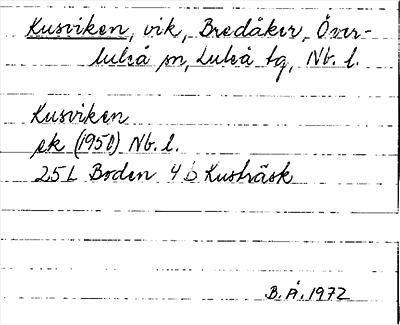 Kusviken, vik, Bredåker, Över-
luleå sn, Luleå tg, Nb. l.
Kusviken
ek (1950) Nb. l.
25L Boden 4b Kusträsk
B. Å. 1972